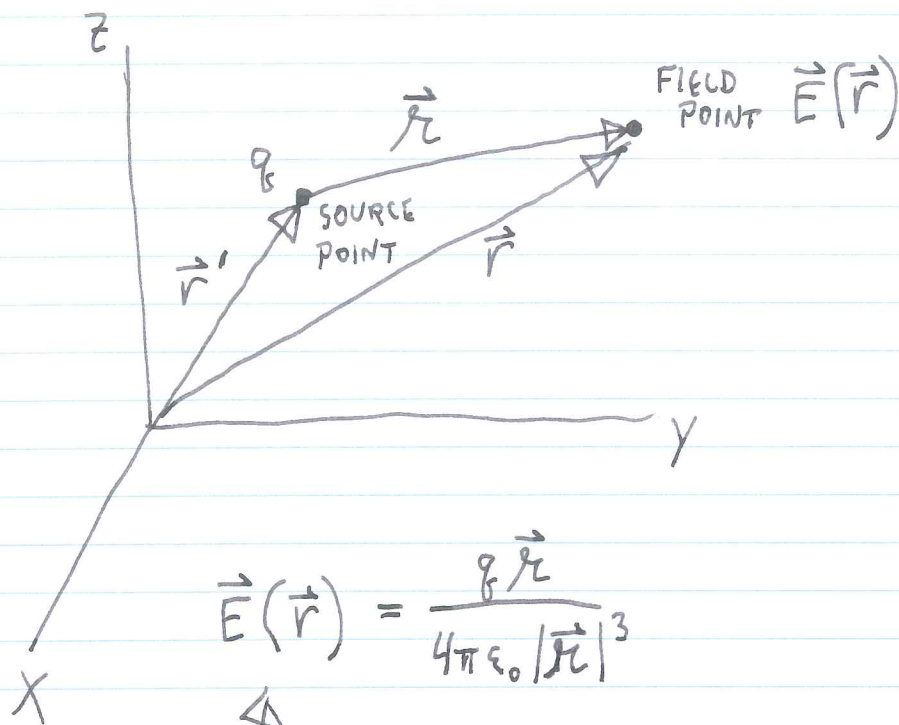 z
𝓇⃗
FIELD
POINT E⃗(r⃗)
q
SOURCE
POINT
r⃗'
r⃗
y
E⃗(r⃗) = q 𝓇⃗ / 4πε₀|𝓇⃗|³
X